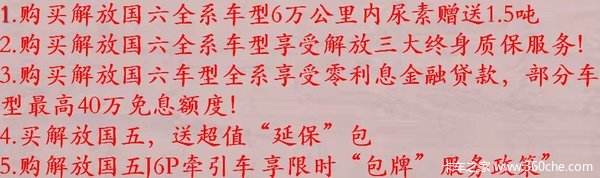 1.购买解放国六全系车型6万公里内尿素赠送1.5吨
2.购买解放国六全系车型享受解放三大终身质保服务!
3.购买解放国六车型全系享受零利息金融贷款，部分车
型最高40万免息额度!
4.买解放国五，送超值“延保”包
5.购解放国五J6P牵引车享限时“包牌”服务政策”
卡车之家 www.360che.com